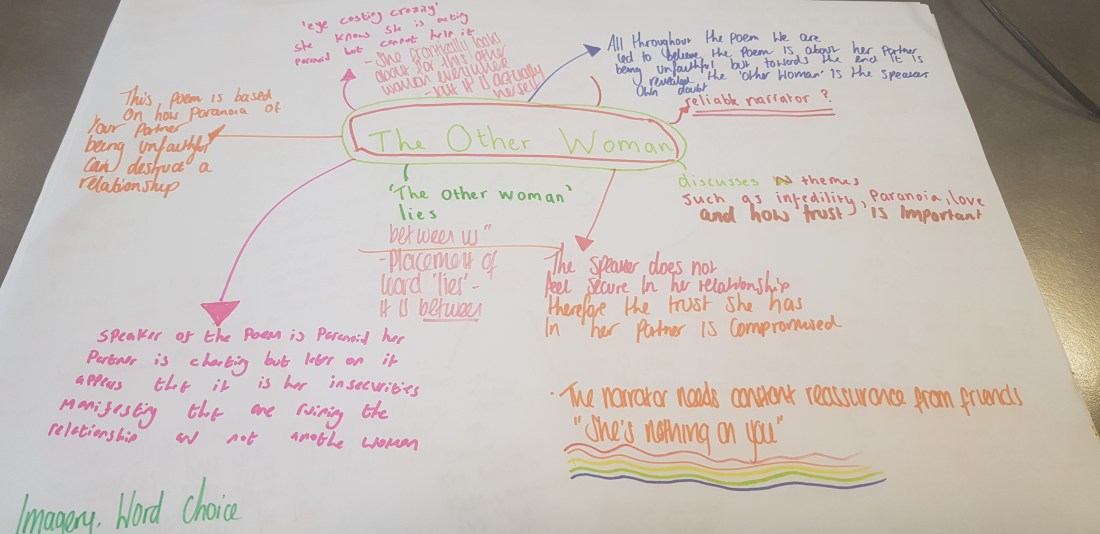 'eye casting crazily'
she knows she is acting
paranoid but cannot help it
-She frantically looks
about for this other
woman everywhere
-but it is actually
herself
All throughout the poem we are
led to believe the poem is about her partner
being unfaithful but towards the end it is
revealed the 'other woman' is the speakers
own doubt
reliable narrator?
This poem is based
on how paranoia of
Your partner
being unfaithful
can destruct a
relationship
The Other Woman
discusses themes
such as infedility, Paranoia, love
and how trust is important
'The other woman'
lies
between us"
-Placement of
word 'lies'-
it is between
The speaker does not
feel secure in her relationship
therefore the trust she has
in her partner is compromised
speaker of the poem is paranoid her
partner is cheating but later on it
appears that it is her insecurities
manifesting that are ruining the
relationship and not another woman
· The narrator needs constant reassurance from friends
"She's nothing on you"
Imagery, Word Choice